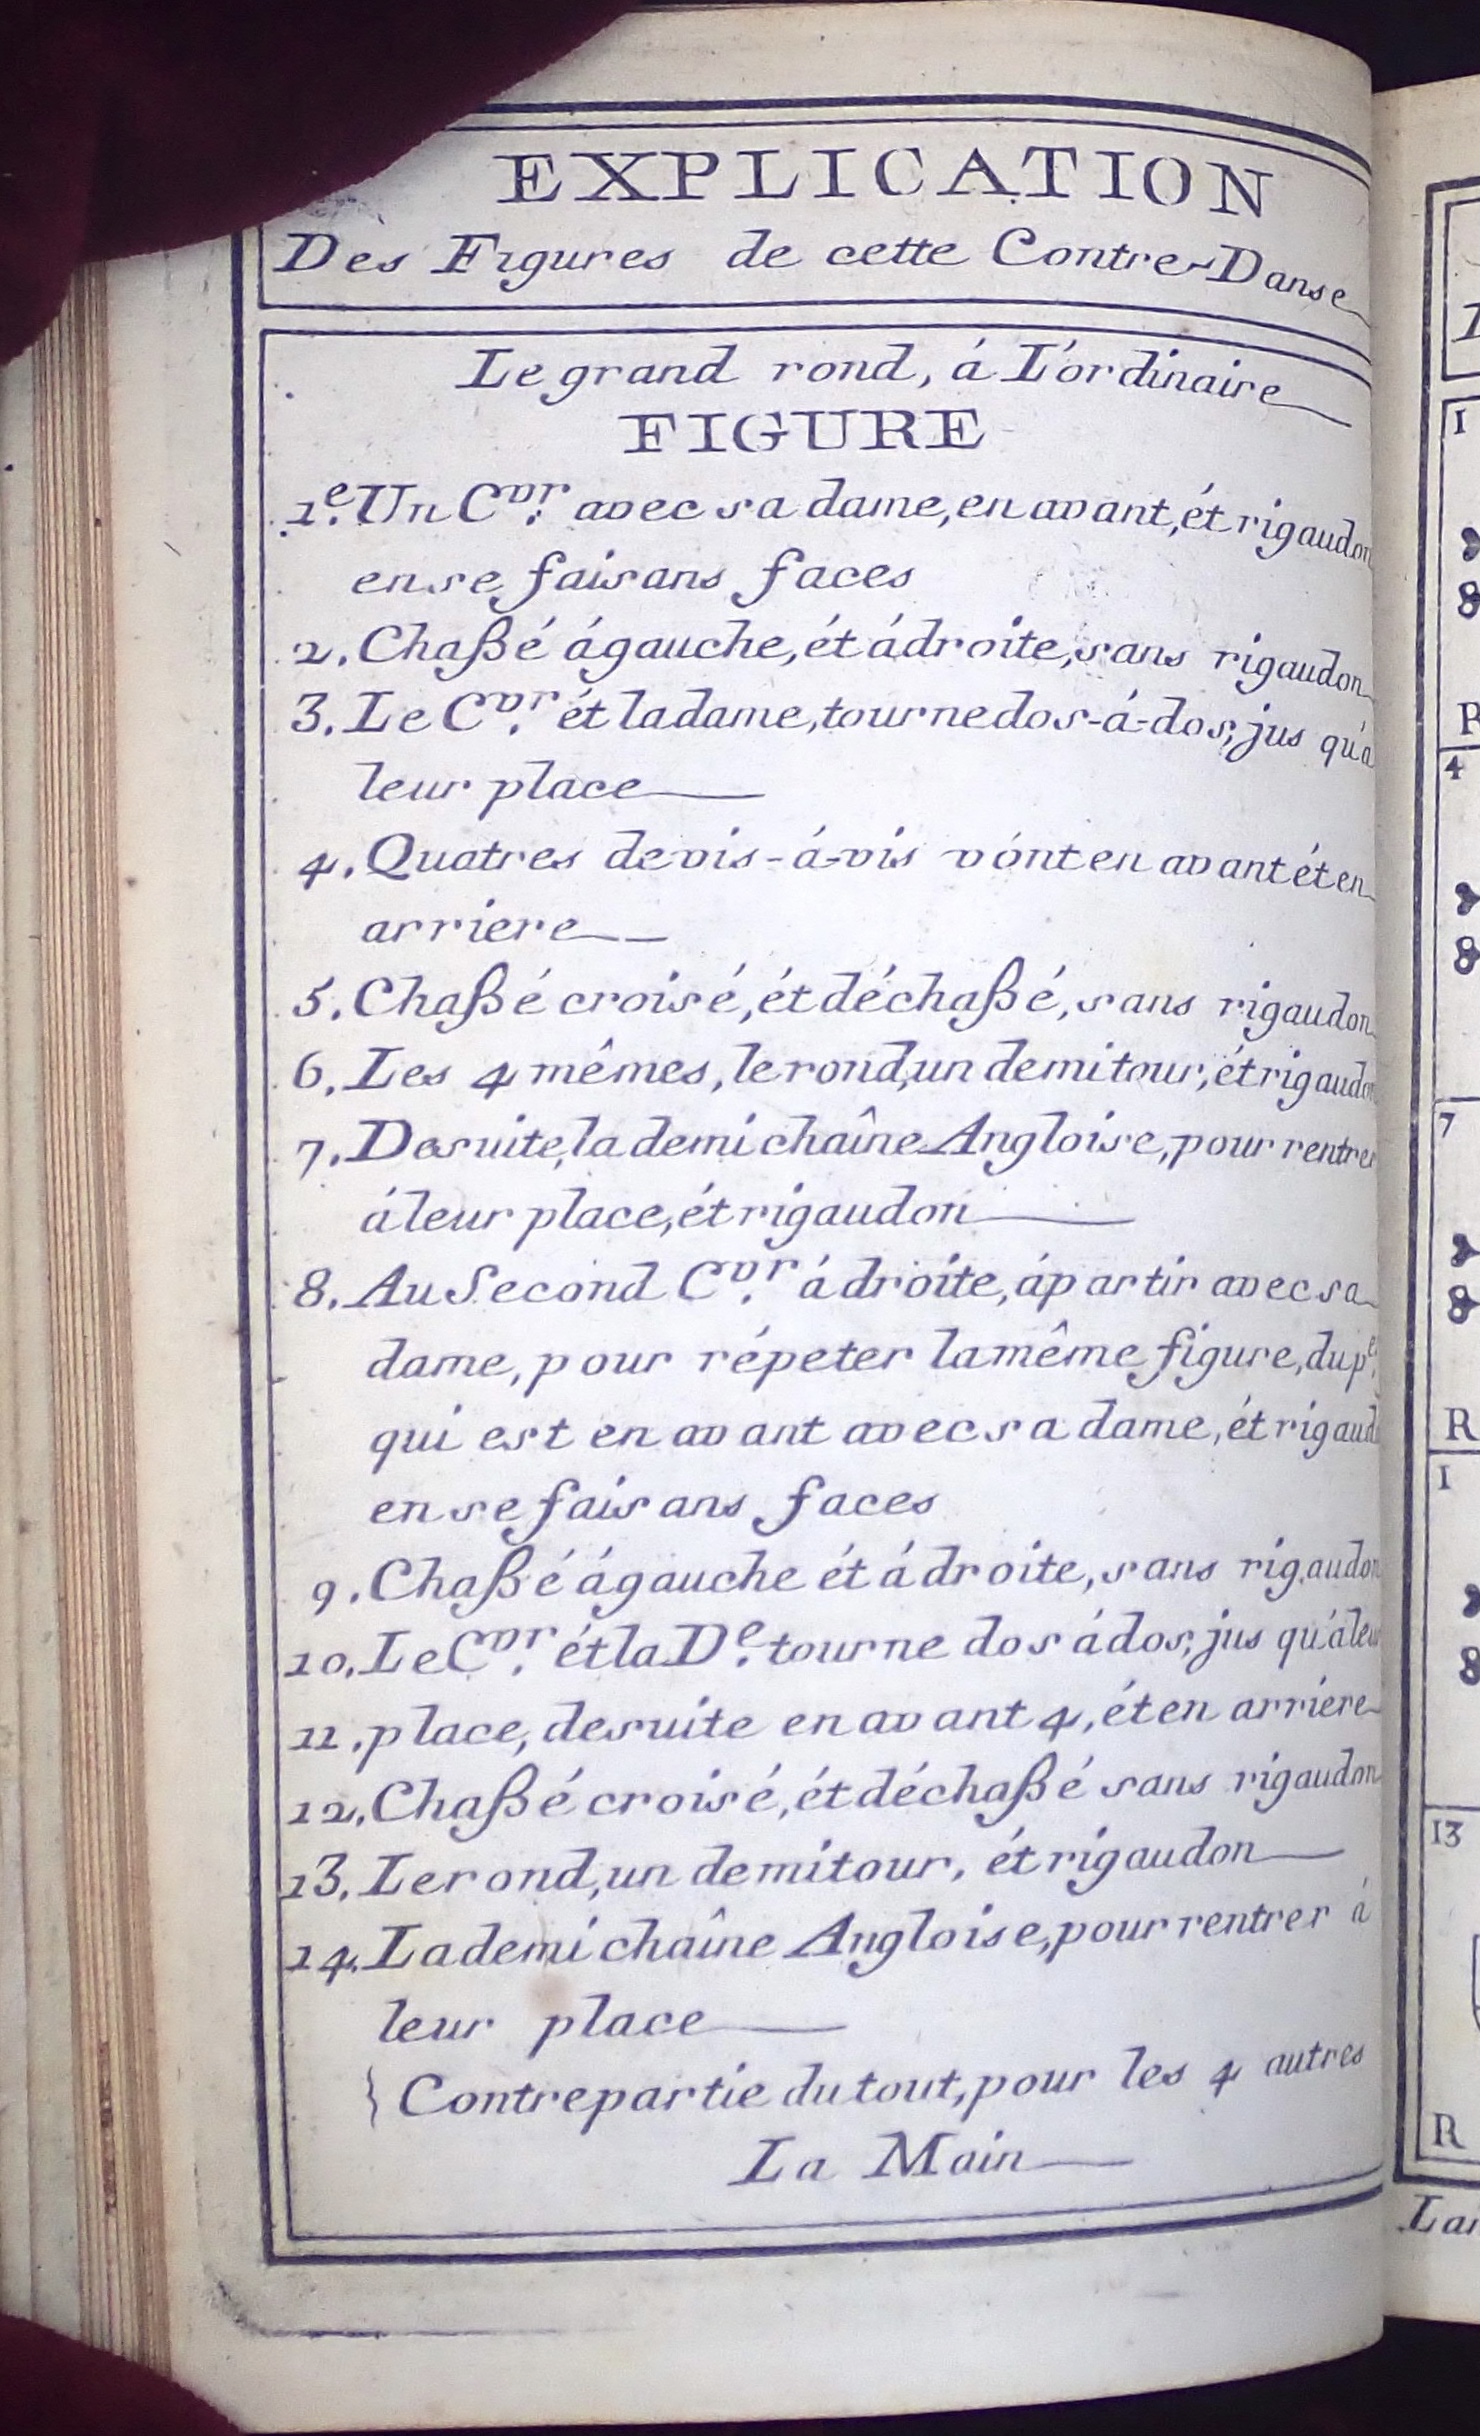 EXPLICATION
Des Figures de cette Contre-Danse
Le grand rond, á L'ordinaire
FIGURE
1e. Un Cvr. avec sa dame, en avant, ét rigaudon
en se faisans faces
2. Chaßé á gauche, ét á droite, sans rigaudon
3. Le Cvr. ét la dame, tourne dos-á-dos, jus qu'a
leur place
4. Quatres de vis-á-vis vónt en avant ét en
arriere
5. Chaßé croisé, ét déchaßé, sans rigaudon
6. Les 4 mêmes, le rond, un demi tour, ét rigaudon
7. De suite, la demi chaîne Angloise, pour rentrer
á leur place, ét rigaudon
8. Au Second Cvr. á droite, á partir avec sa
dame, pour répeter la même figure, du pe.
qui est en avant avec sa dame, ét rigaud
en se faisans faces
9. Chaßé á gauche ét á droite, sans rigaudon
10. Le Cvr. ét la De. tourne dos á dos, jus qu'á leur
11. place, de suite en avant 4, ét en arriere
12. Chaßé croisé, ét déchaßé sans rigaudon
13. Le rond, un demi tour, ét rigaudon
14. La demi chaîne Angloise, pour rentrer á
leur place
} Contrepartie du tout, pour les 4 autres
La Main
1
R
4
7
R
1
13
R